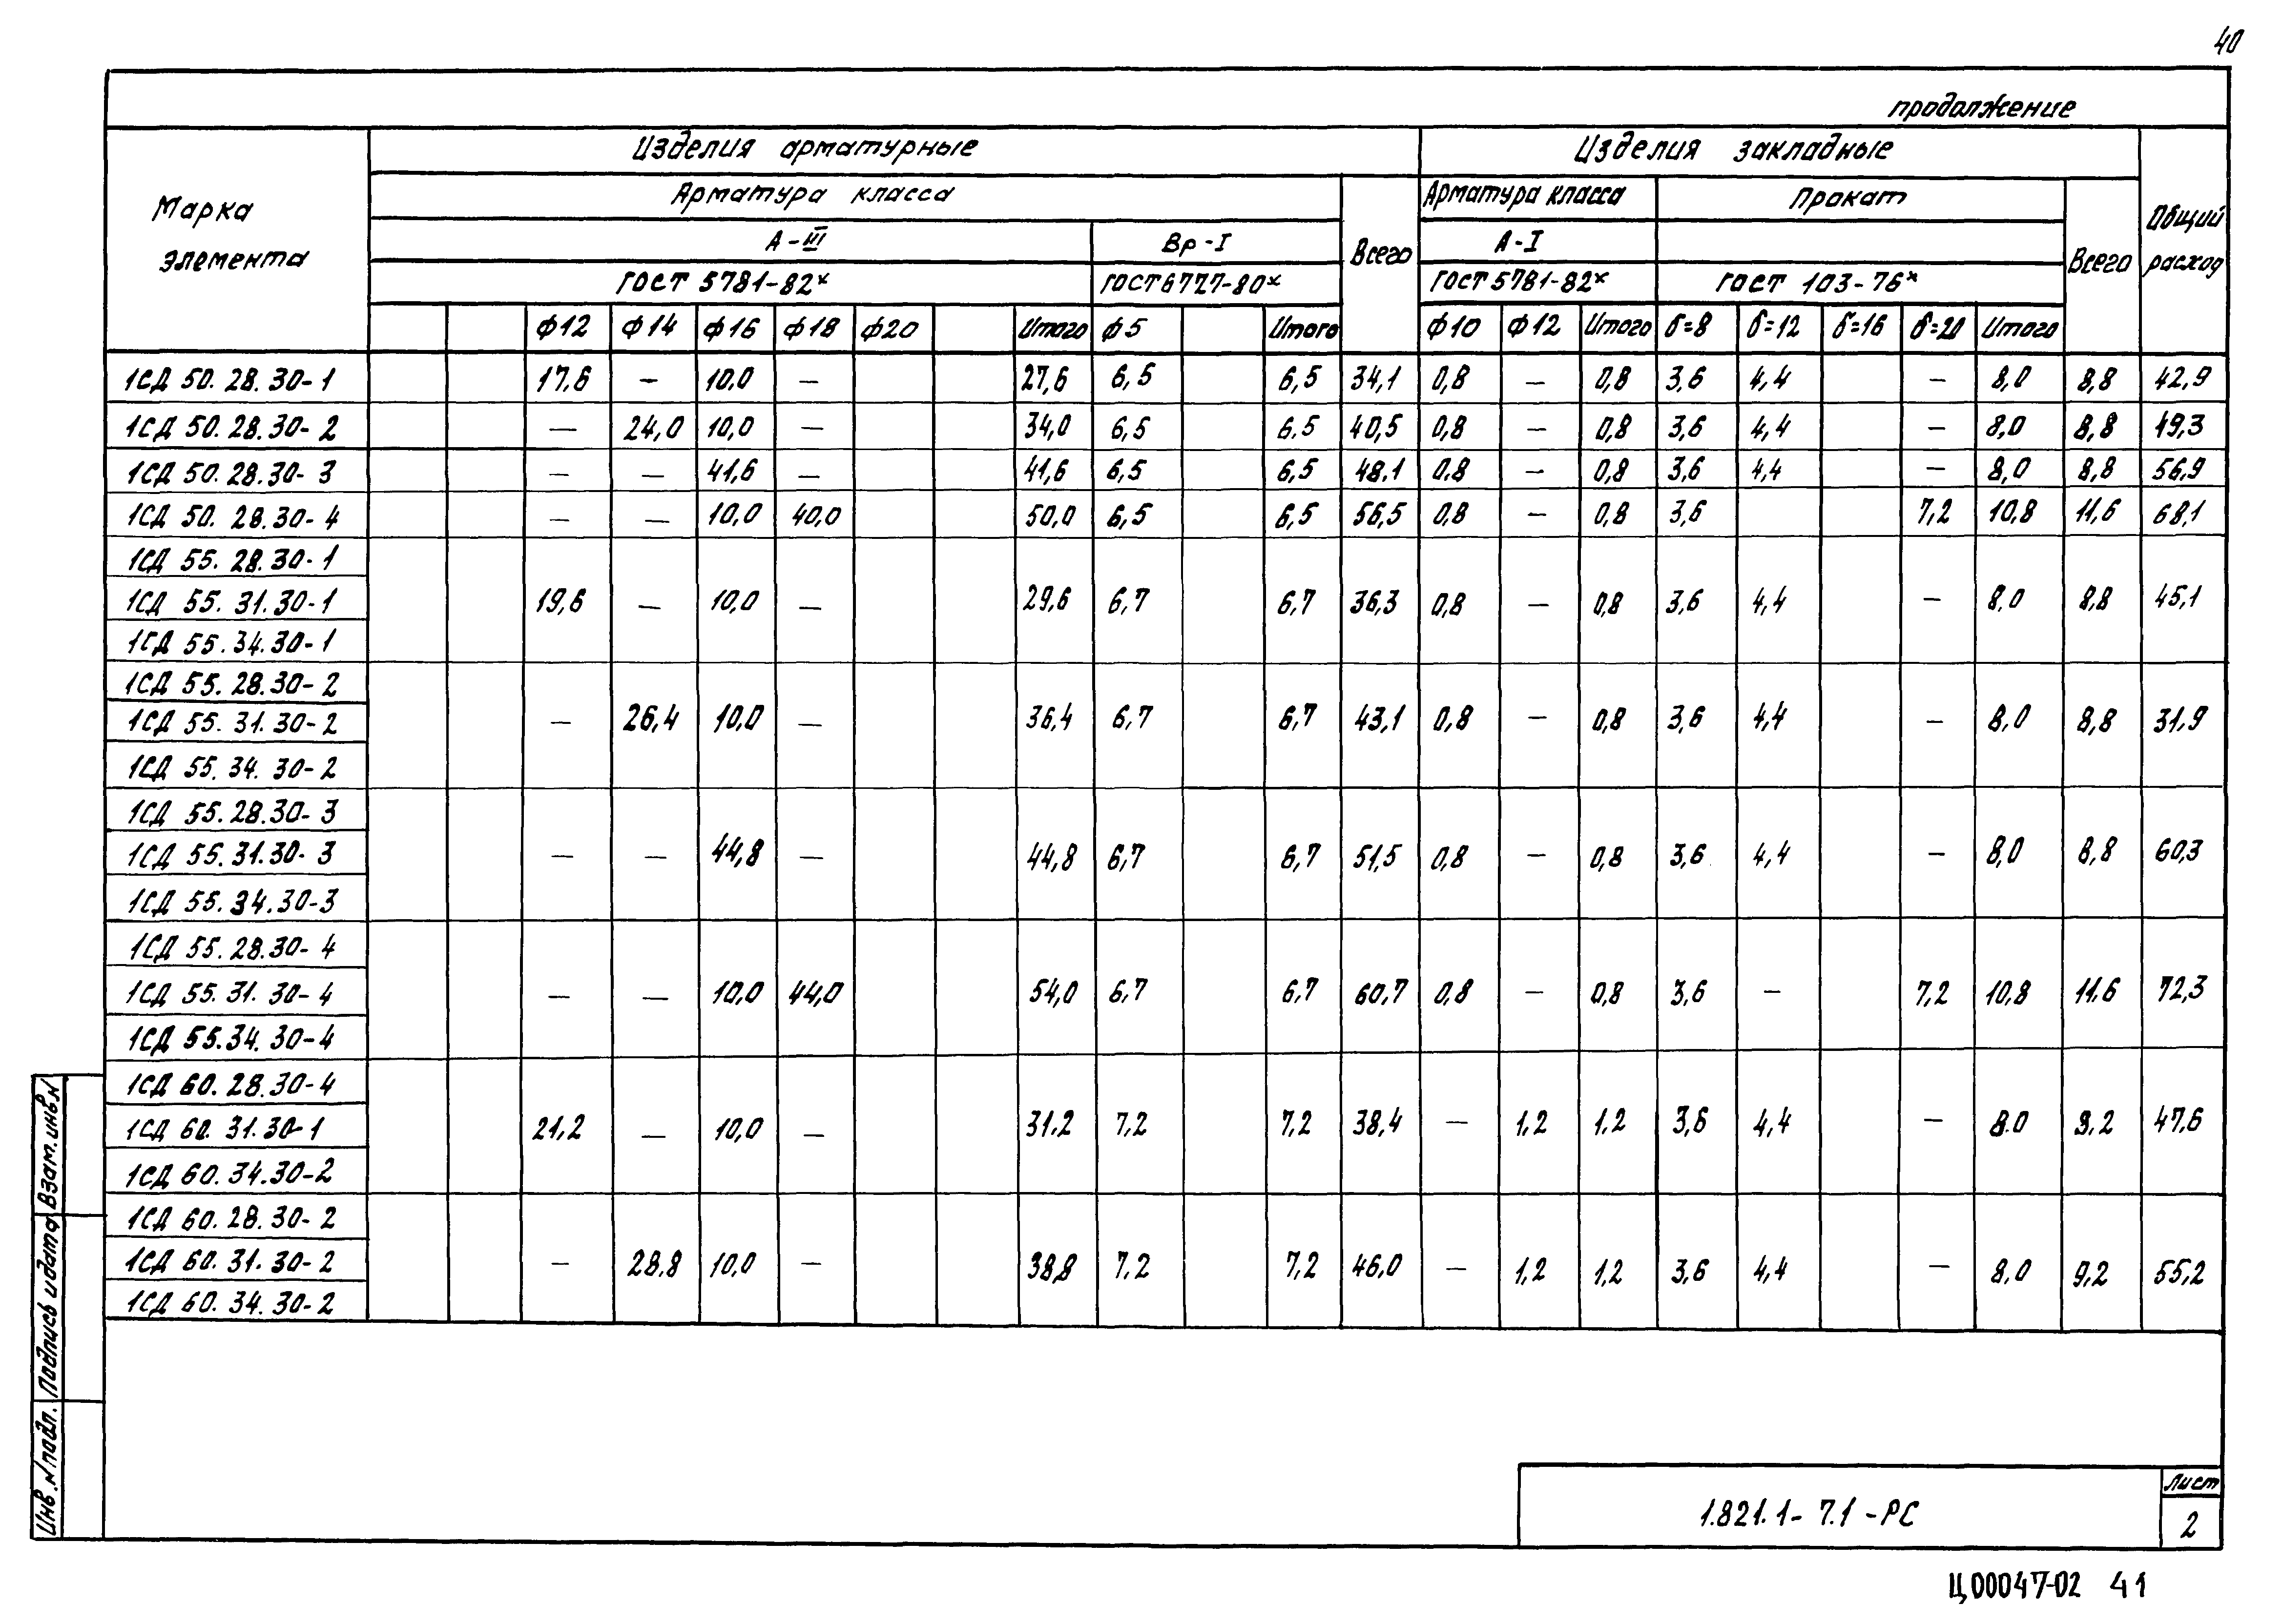 40
продолжение
Марка элемента
Изделия арматурные
Изделия закладные
Общий расход
Арматура класса
Всего
Арматура класса
Прокат
Всего
А-III
Вр-I
А-I
ГОСТ 5781-82*
ГОСТ 6727-80*
ГОСТ 5781-82*
ГОСТ 103-76*
Ф12 Ф14 Ф16 Ф18 Ф20 Итого Ф5 Итого Ф10 Ф12 Итого δ=8 δ=12 δ=16 δ=20 Итого
1СД 50.28.30-1 17,6 — 10,0 — 27,6 6,5 6,5 34,1 0,8 — 0,8 3,6 4,4 — 8,0 8,8 42,9
1СД 50.28.30-2 — 24,0 10,0 — 34,0 6,5 6.5 40,5 0,8 — 0,8 3,6 4,4 — 8,0 8,8 49,3
1СД 50.28.30-3 — — 41,6 — 41,6 6,5 6,5 48,1 0,8 — 0,8 3,6 4,4 — 8,0 8,8 56,9
1СД 50.28.30-4 — — 10,0 40,0 50,0 6,5 6,5 56,5 0,8 — 0,8 3,6 7,2 10,8 11,6 68,1
1СД 55.28.30-1
1СД 55.31.30-1 19,6 — 10,0 — 29,6 6,7 6,7 36,3 0,8 — 0,8 3,6 4,4 — 8,0 8,8 45,1
1СД 55.34.30-1
1СД 55.28.30-2
1СД 55.31.30-2 — 26,4 10,0 — 36,4 6,7 6,7 43,1 0,8 — 0,8 3,6 4,4 — 8,0 8,8 31,9
1СД 55.34.30-2
1СД 55.28.30-3
1СД 55.31.30-3 — — 44,8 — 44,8 6,7 6,7 51,5 0,8 — 0,8 3,6 4,4 — 8,0 8,8 60,3
1СД 55.34.30-3
1СД 55.28.30-4
1СД 55.31.30-4 — — 10,0 44,0 54,0 6,7 6,7 60,7 0,8 — 0,8 3,6 — 7,2 10,8 11,6 72,3
1СД 55.34.30-4
1СД 60.28.30-4
1СД 60.31.30-1 21,2 — 10,0 — 31,2 7,2 7,2 38,4 — 1,2 1,2 3,6 4,4 — 8.0 9,2 47,6
1СД 60.34.30-2
1СД 60.28.30-2
1СД 60.31.30-2 — 28,8 10,0 — 38,8 7,2 7,2 46,0 — 1,2 1,2 3,6 4,4 — 8,0 9,2 55,2
1СД 60.34.30-2
Инв.N подл. Подпись и дата Взам.инв.N
1.821.1-7.1-РС
Лист
2
Ц00047-02 41